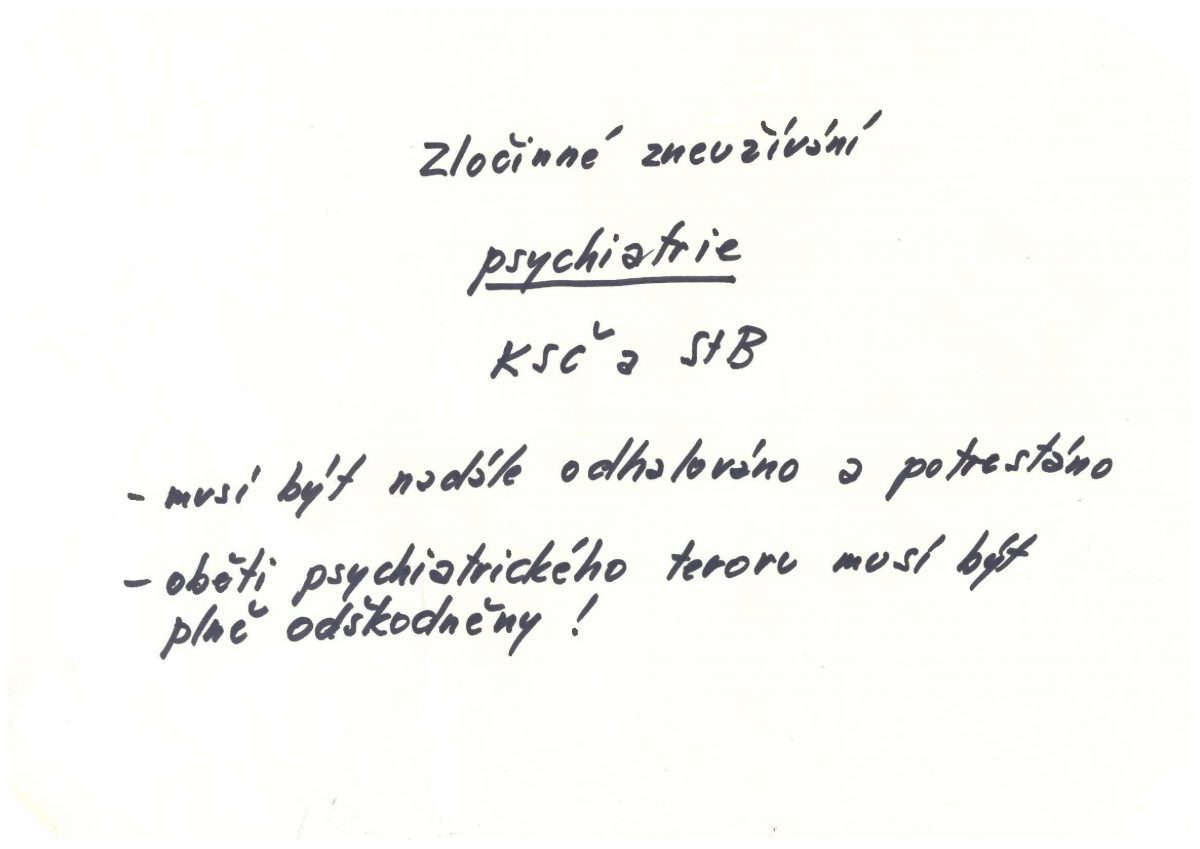 Zločinné zneužívání
psychiatrie
KSČ a StB
- musí být nadále odhalováno a potrestáno
- oběti psychiatrického teroru musí být
plně odškodněny!